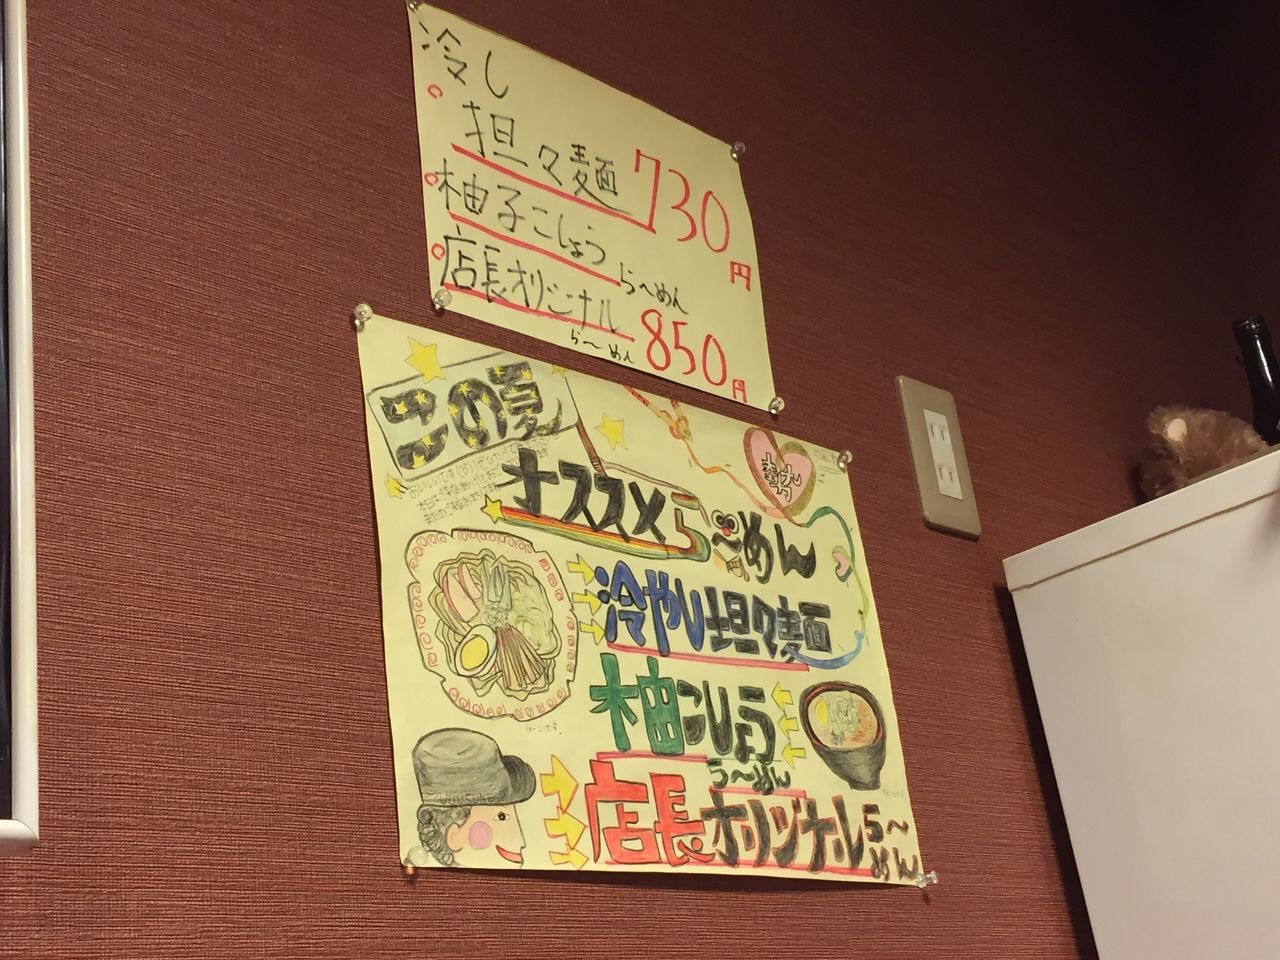 冷し
担々麺 730円
柚子こしょう
らーめん
店長オリジナル
らーめん 850円
この夏
オススメらーめん
冷やし坦々麺
柚こしょう
らーめん
店長オリジナルらーめん